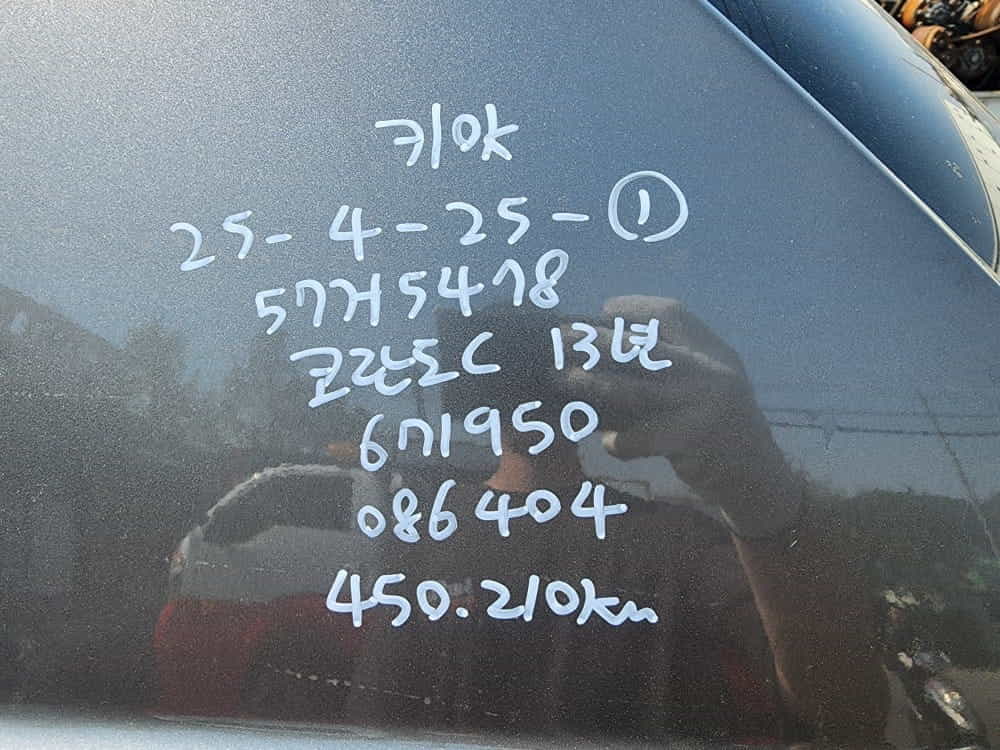 키ok
25-4-25-①
57거5478
코란도C 13년
671950
086404
450.210km